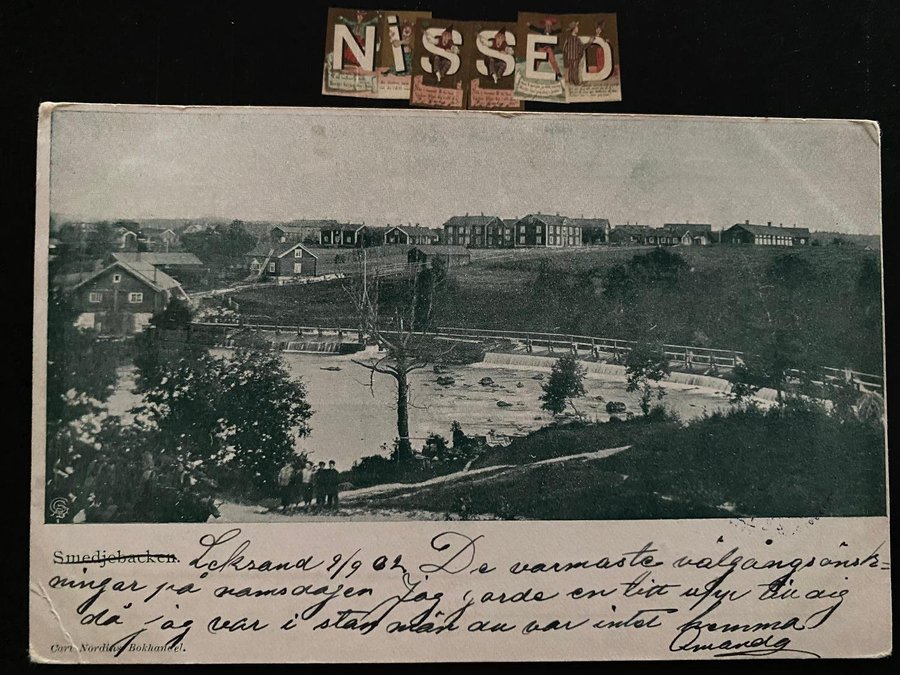 NiSSED
Smedjebacken. Leksand 9/9 02 De varmaste välgångsönsk-
ningar på namsdagen Jag gorde en titt till dig
då jag var i stan män du var intet hemma
Amanda
Carl Nordins Bokhandel.